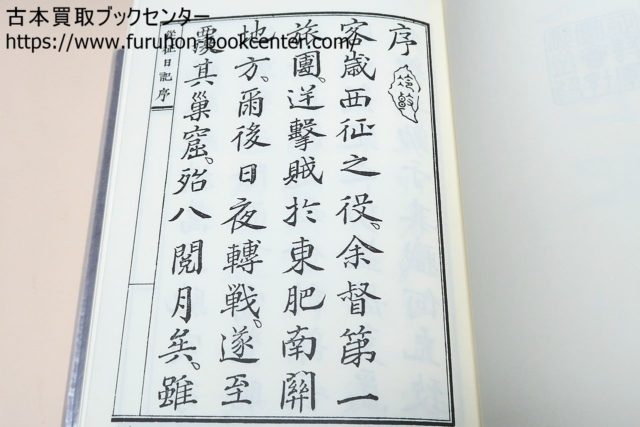 古本買取ブックセンター
https://www.furuhon-bookcenter.com/
序
客歳西征之役。余督第一
旅團。逆撃賊於東肥南關
地方。爾後日夜轉戦。遂至
覆其巣窟。殆八閲月矣。雖
從征日記序